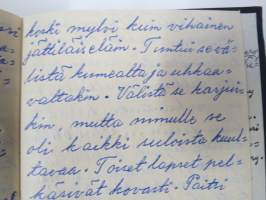 koski mylvi kuin vihainen
jättiläiseläin. Tuntui se vä-
listä kumealta ja uhkaa-
valtakin. Välistä se karjui-
kin, mutta minulle se
oli kaikki suloista kuul-
tavaa. Toiset lapset pel-
käsivät kovasti. Paitsi